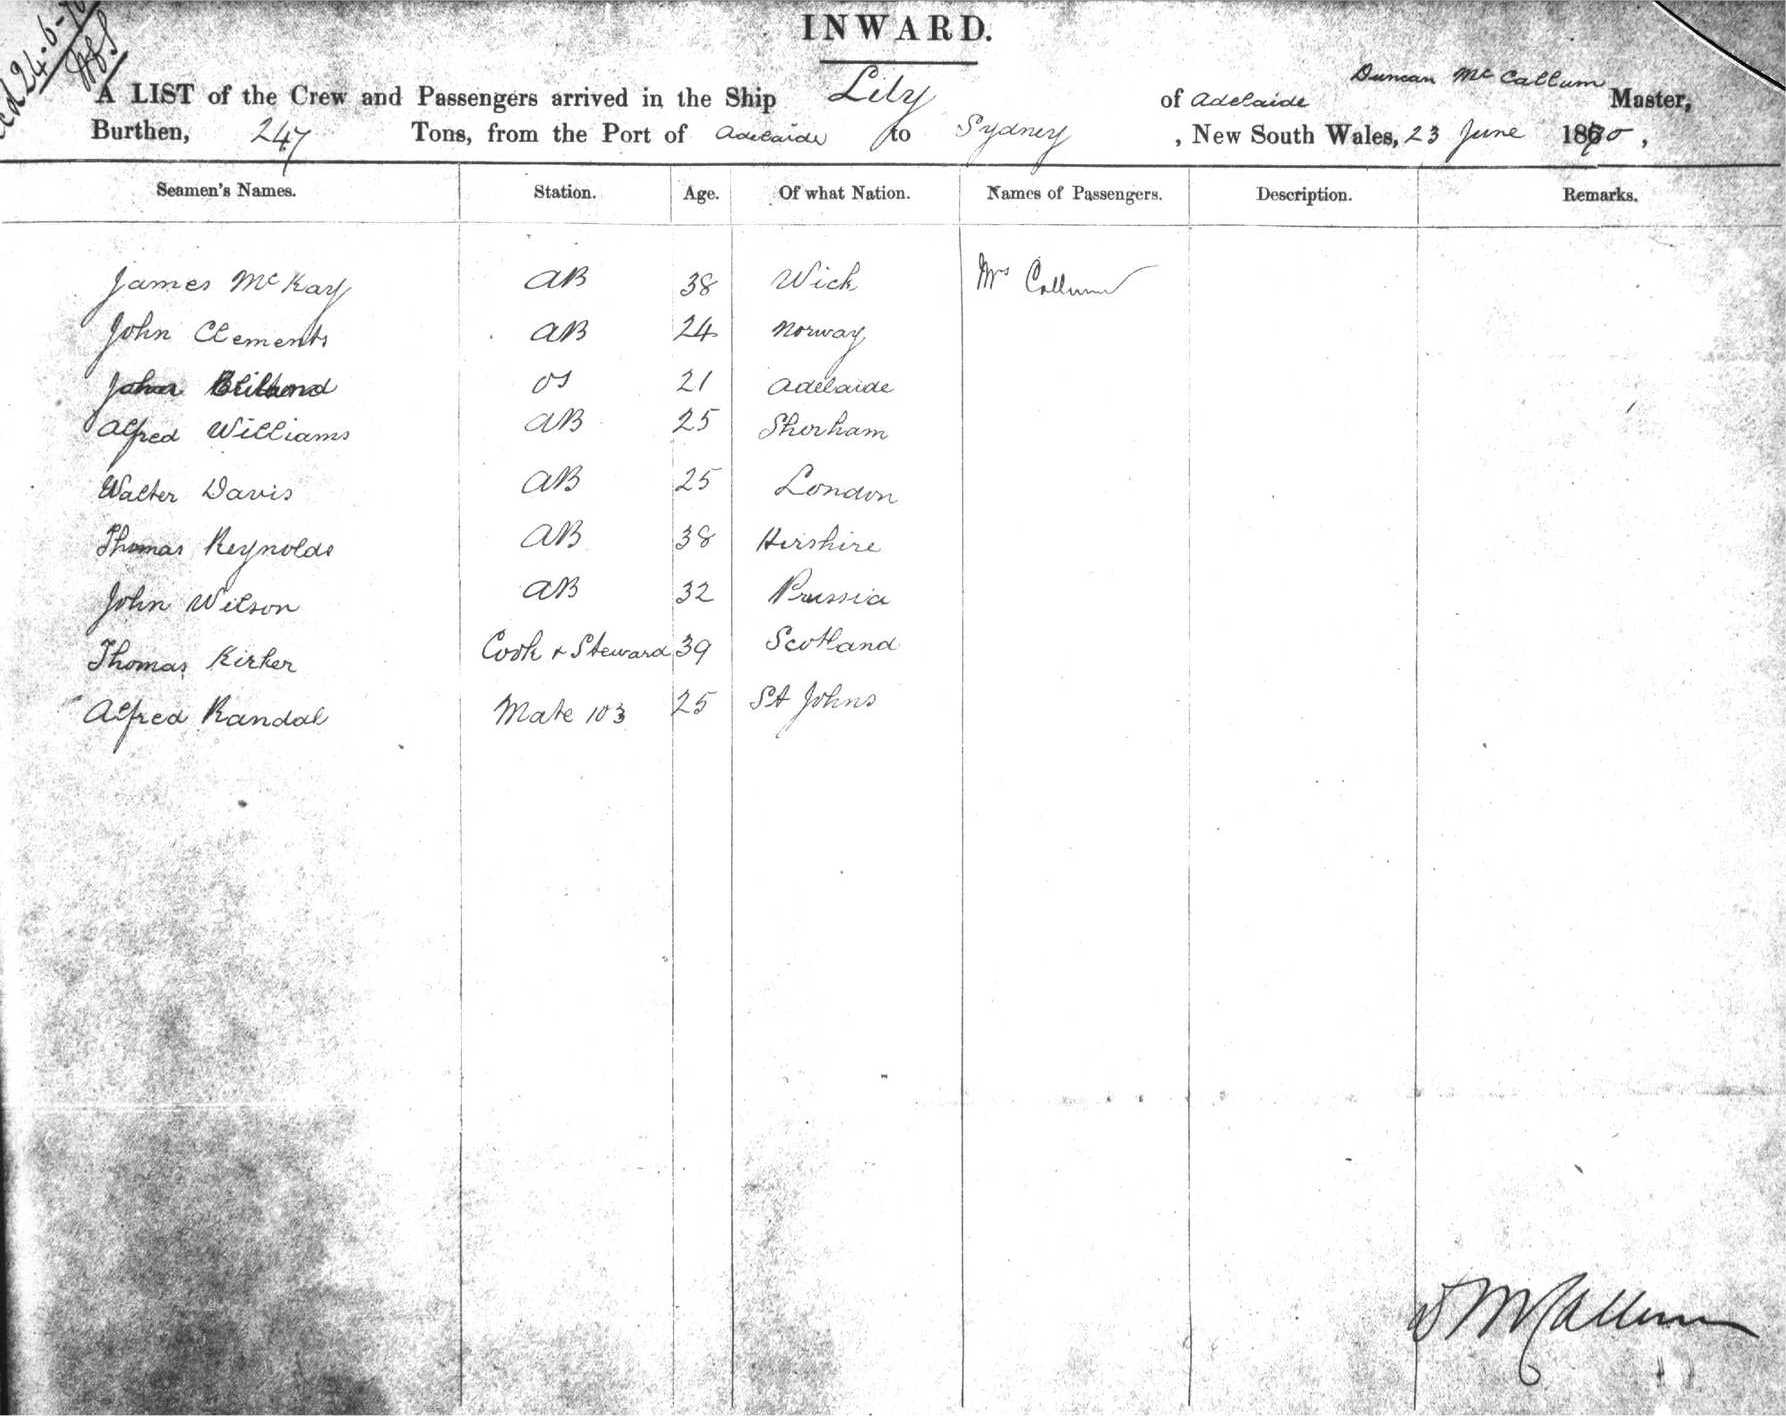 24-6-70
INWARD.
Duncan McCallum
A LIST of the Crew and Passengers arrived in the Ship Lily of Adelaide Master,
Burthen, 247 Tons, from the Port of Adelaide to Sydney , New South Wales, 23 June 1870 ,
Seamen's Names. Station. Age. Of what Nation. Names of Passengers. Description. Remarks.
James McKay AB 38 Wick Mrs Callum
John Clements AB 24 Norway
OS 21 Adelaide
Alfred Williams AB 25 Shorham
Walter Davis AB 25 London
Thomas Reynolds AB 38 Hirshire
John Wilson AB 32 Prussia
Thomas Kirker Cook + Steward 39 Scotland
Alfred Randal Mate 103 25 St Johns
D McCallum